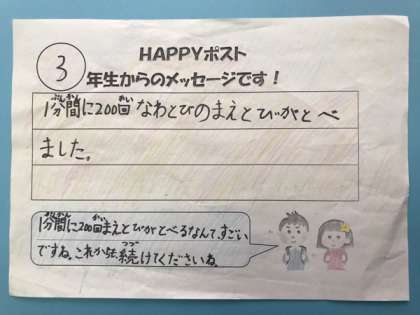 HAPPYポスト
3
年生からのメッセージです！
1分間に200回なわとびのまえとびがとべ
ました。
1分間に200回まえとびがとべるなんて、すごい
ですね。これからも、続けてくださいね。